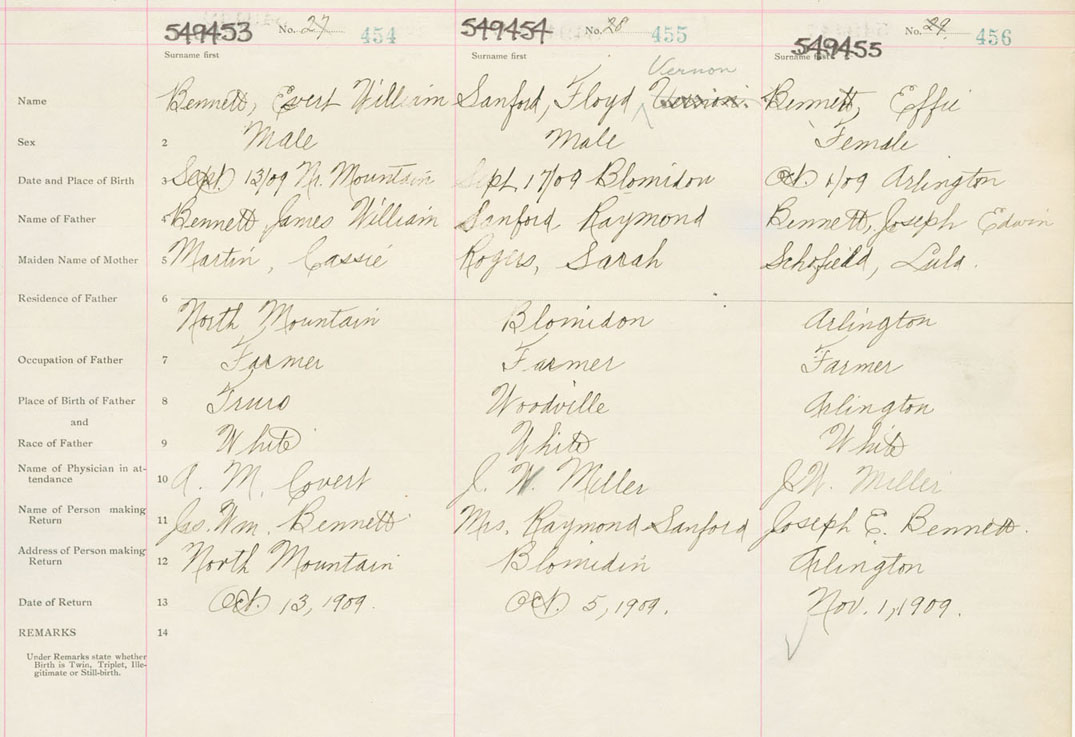 549453 No. 27 454 549454 No. 28 455 No. 29 456
549455
Surname first Surname first Surname first
Vernon
Name Bennett, Evert William Sanford, Floyd Bennett, Effie
Sex 2 Male Male Female
Date and Place of Birth 3 Sept. 13/09 N. Mountain Sept. 17/09 Blomidon Oct. 1/09 Arlington
Name of Father 4 Bennett James William Sanford Raymond Bennett, Joseph Edwin
Maiden Name of Mother 5 Martin, Cassie Rogers, Sarah Schofield, Lula.
Residence of Father 6
North Mountain Blomidon Arlington
Occupation of Father 7 Farmer Farmer Farmer
Place of Birth of Father 8 Truro Woodville Arlington
and
Race of Father 9 White White White
Name of Physician in at-
tendance 10 A. M. Covert J. W. Miller J. W. Miller
Name of Person making
Return 11 Jas. Wm. Bennett Mrs. Raymond Sanford Joseph E. Bennett.
Address of Person making
Return 12 North Mountain Blomidin Arlington
Date of Return 13 Oct. 13, 1909. Oct. 5, 1909. Nov. 1, 1909.
REMARKS 14
Under Remarks state whether
Birth is Twin, Triplet, Ille-
gitimate or Still-birth.